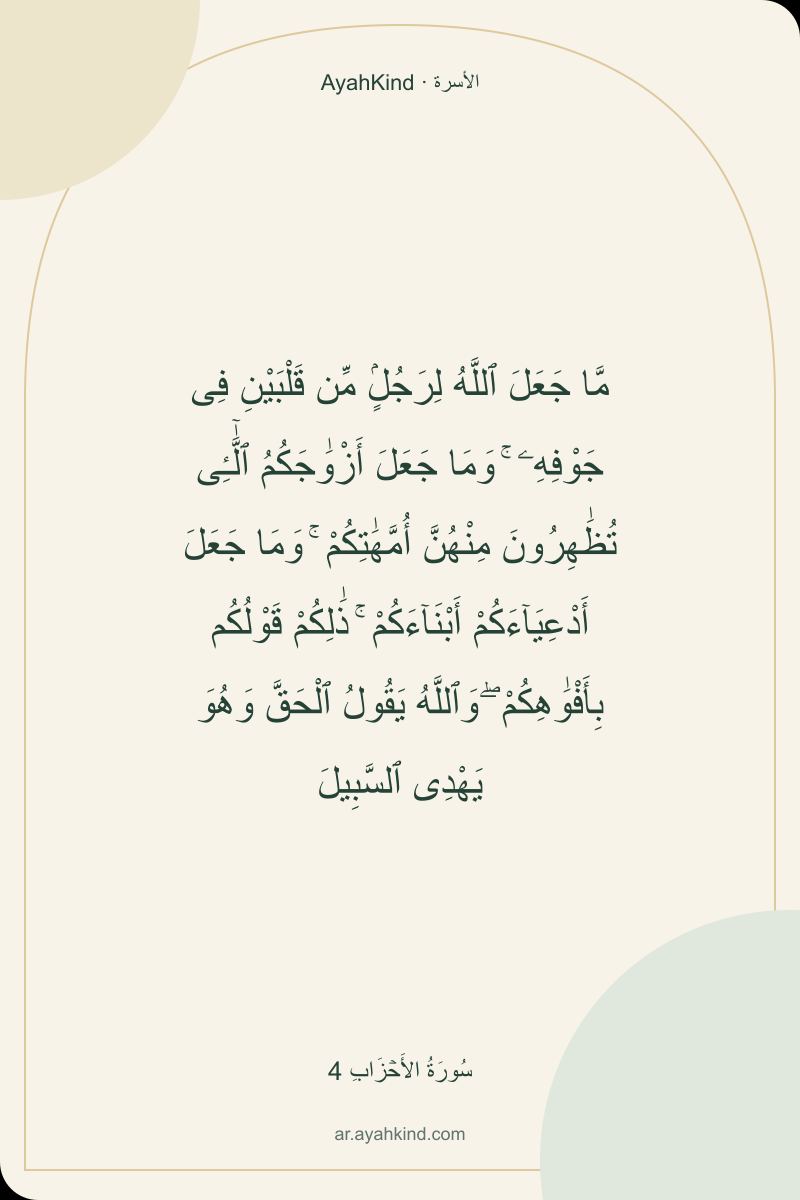 AyahKind · الأسرة
مَّا جَعَلَ ٱللَّهُ لِرَجُلٍۢ مِّن قَلْبَيْنِ فِى
جَوْفِهِۦ ۚ وَمَا جَعَلَ أَزْوَٰجَكُمُ ٱلَّـٰٓـِٔى
تُظَـٰهِرُونَ مِنْهُنَّ أُمَّهَـٰتِكُمْ ۚ وَمَا جَعَلَ
أَدْعِيَآءَكُمْ أَبْنَآءَكُمْ ۚ ذَٰلِكُمْ قَوْلُكُم
بِأَفْوَٰهِكُمْ ۖ وَٱللَّهُ يَقُولُ ٱلْحَقَّ وَهُوَ
يَهْدِى ٱلسَّبِيلَ
سُورَةُ الأَحۡزَابِ 4
ar.ayahkind.com